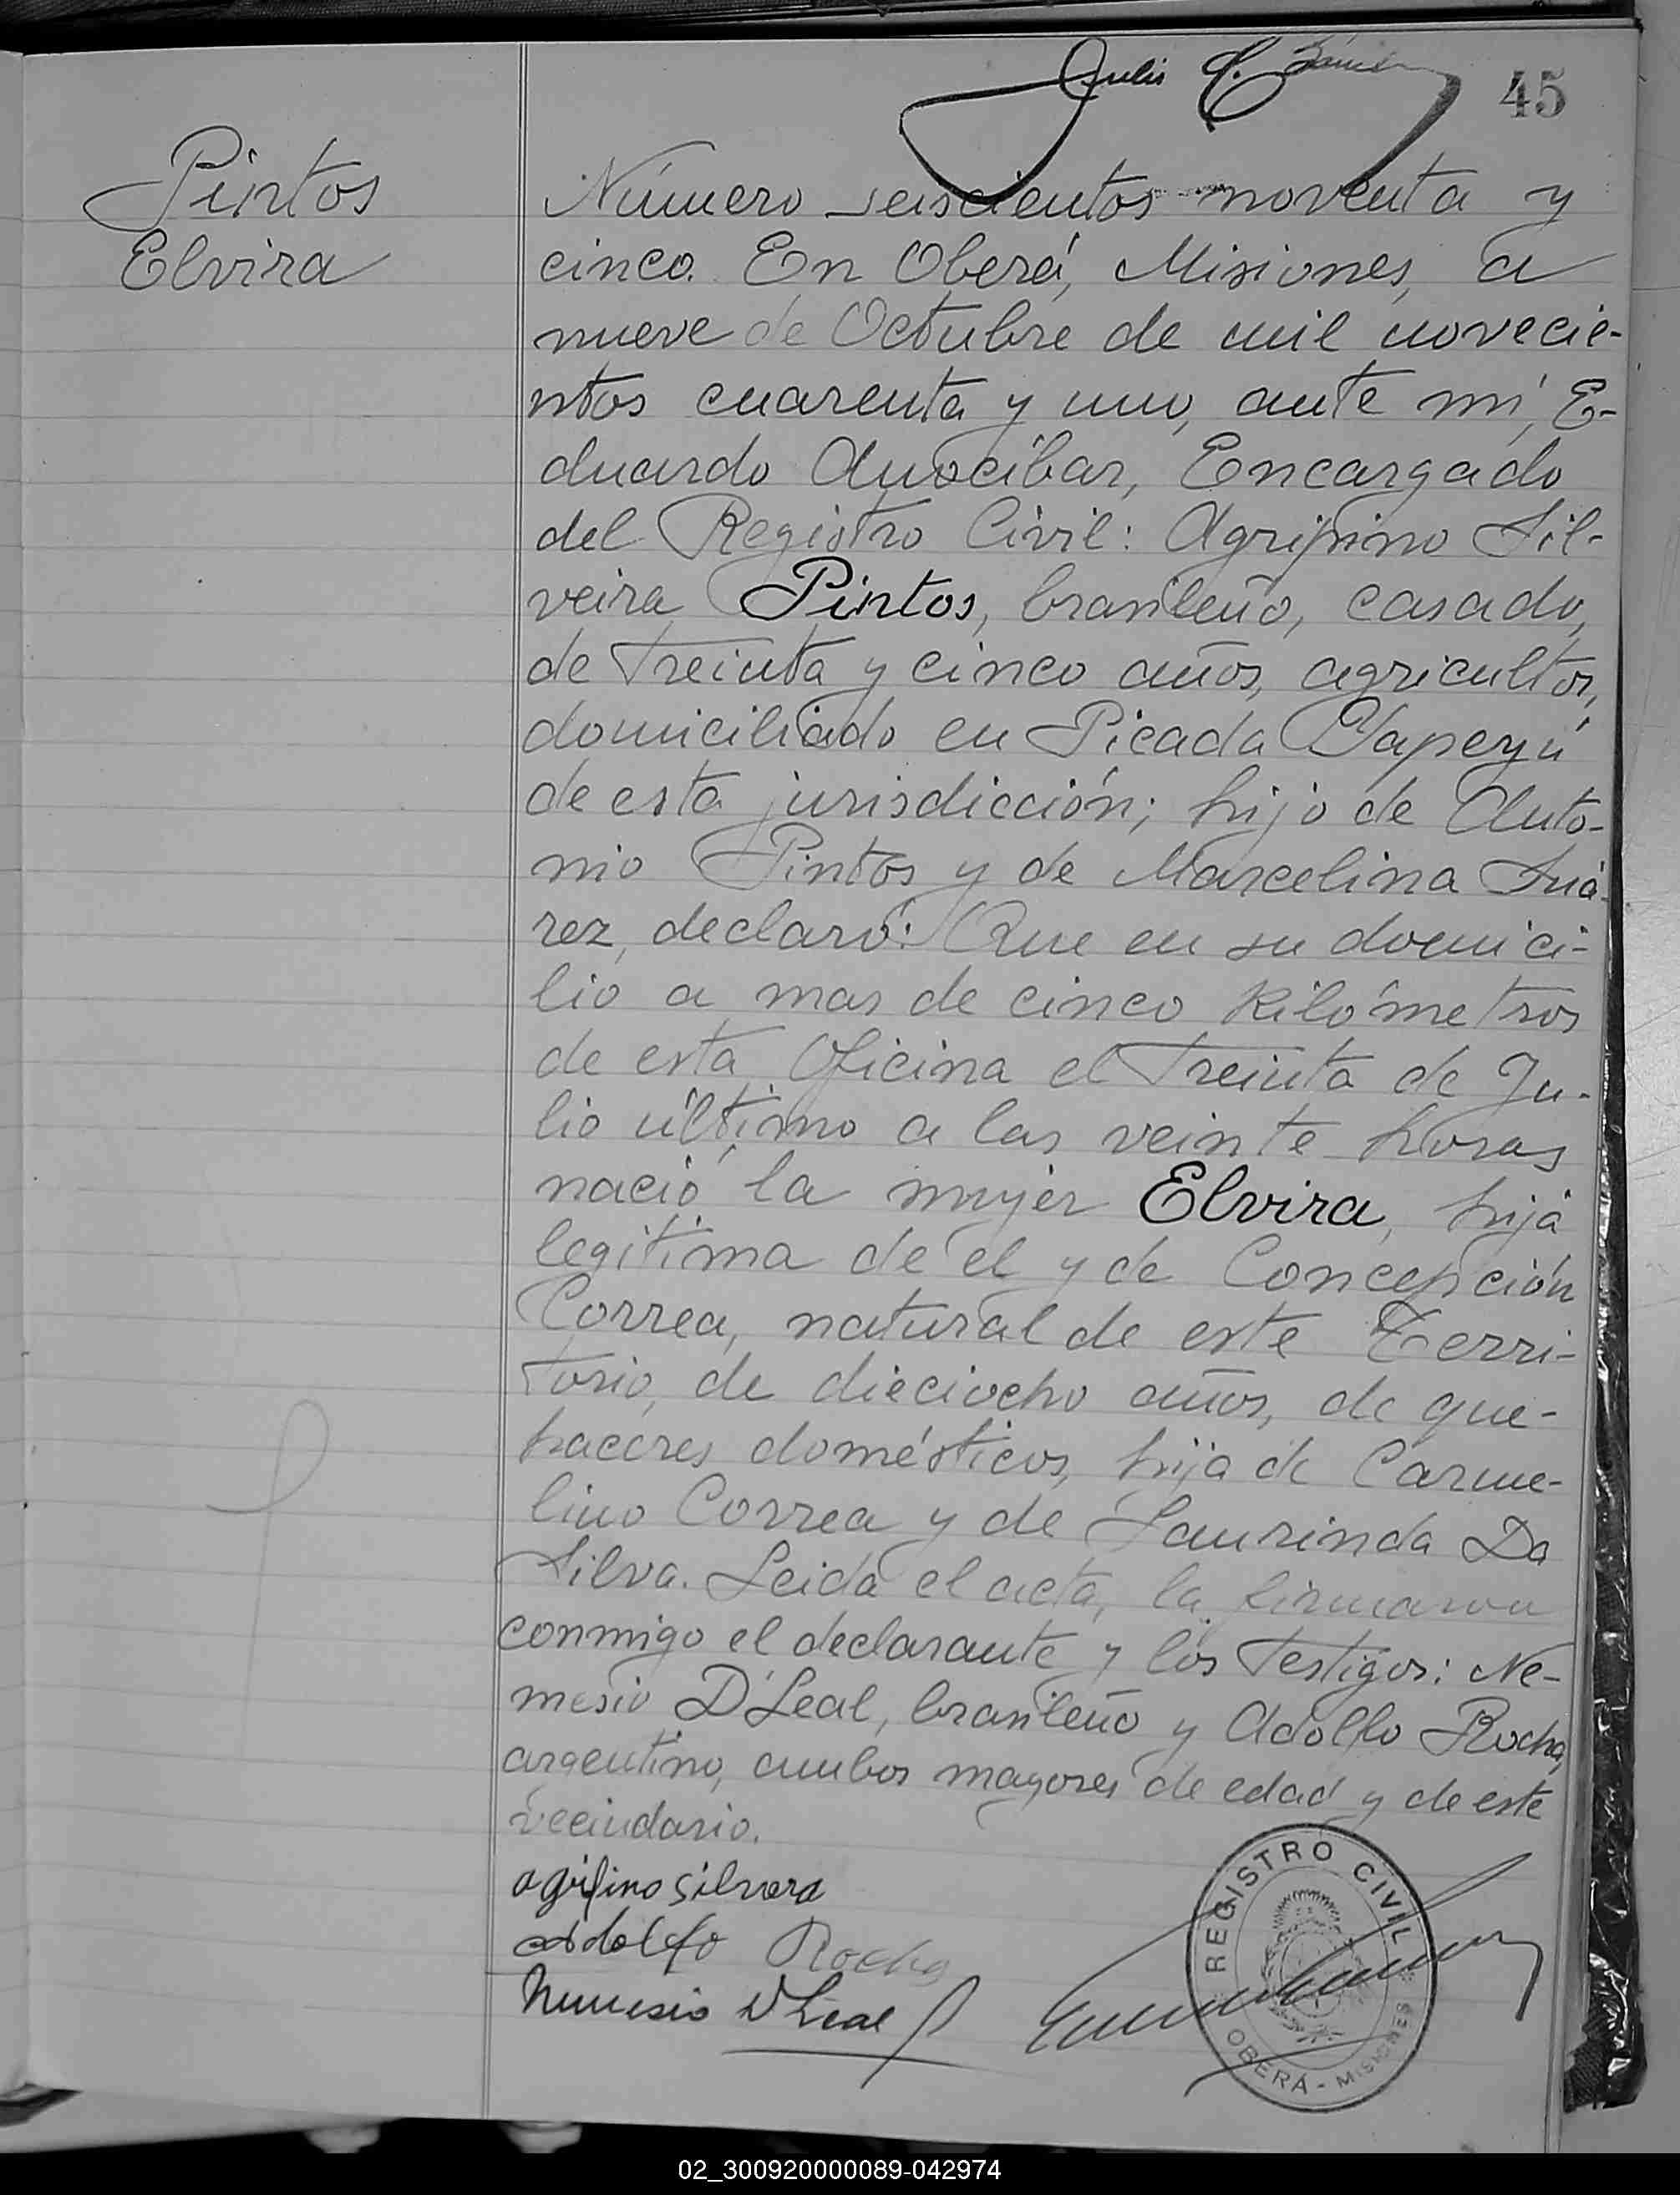 45
Pintos
Elvira
Número seiscientos noventa y
cinco. En Oberá, Misiones, a
nueve de Octubre de mil novecie-
ntos cuarenta y uno, ante mí, E-
duardo Anocibar, Encargado
del Registro Civil: Agripino Sil-
veira Pintos, brasileño, casado,
de treinta y cinco años, agricultor,
domiciliado en Picada Yapeyú
de esta jurisdicción; hijo de Anto-
nio Pintos y de Marcelina Suá-
rez, declaró: Que en su domici-
lio a mas de cinco kilómetros
de esta Oficina el treinta de Ju-
lio último a las veinte horas
nació la mujer Elvira, hija
legítima de el y de Concepción
Correa, natural de este Terri-
torio, de dieciocho años, de que-
haceres domésticos, hija de Carme-
lino Correa y de Laurinda Da
Silva. Leida el acta, la firmaron
conmigo el declarante y los testigos: Ne-
mesio D'Leal, brasileño y Adolfo Rocha,
argentino, ambos mayores de edad y de este
vecindario.
agripino Silvera
Adolfo Rocha
Nemesio D Leal
REGISTRO CIVIL
OBERÁ - MISIONES
02_300920000089-042974